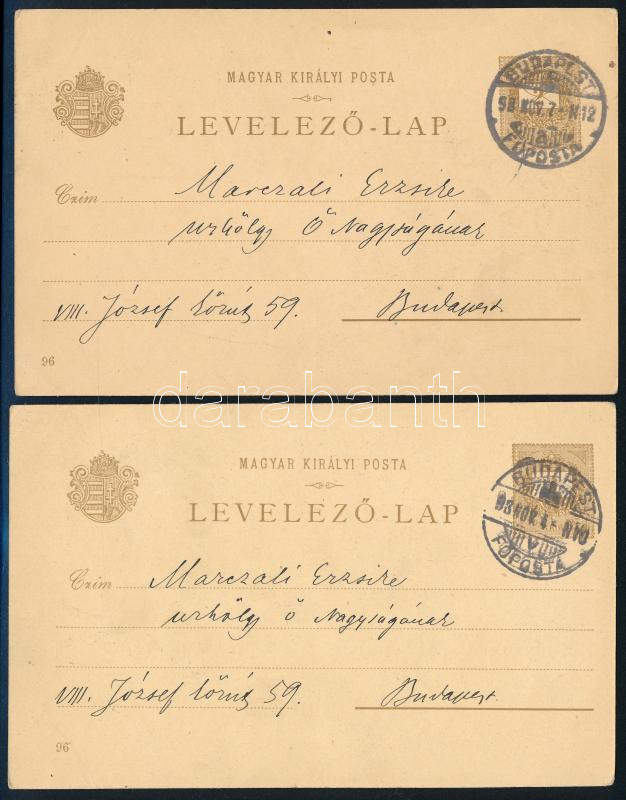 MAGYAR KIRÁLYI POSTA
LEVELEZŐ-LAP
BUDAPEST
98 NOV. 7 N12
FŐPOSTA
Czím Marczali Erzsike
urhölgy Ő Nagyságának
VIII. József körút 59. Budapest.
96
darabanth
MAGYAR KIRÁLYI POSTA
LEVELEZŐ-LAP
BUDAPEST
98 NOV. N10
FŐPOSTA
Czím Marczali Erzsike
urhölgy ő Nagyságának
VIII. József körút 59. Budapest.
96